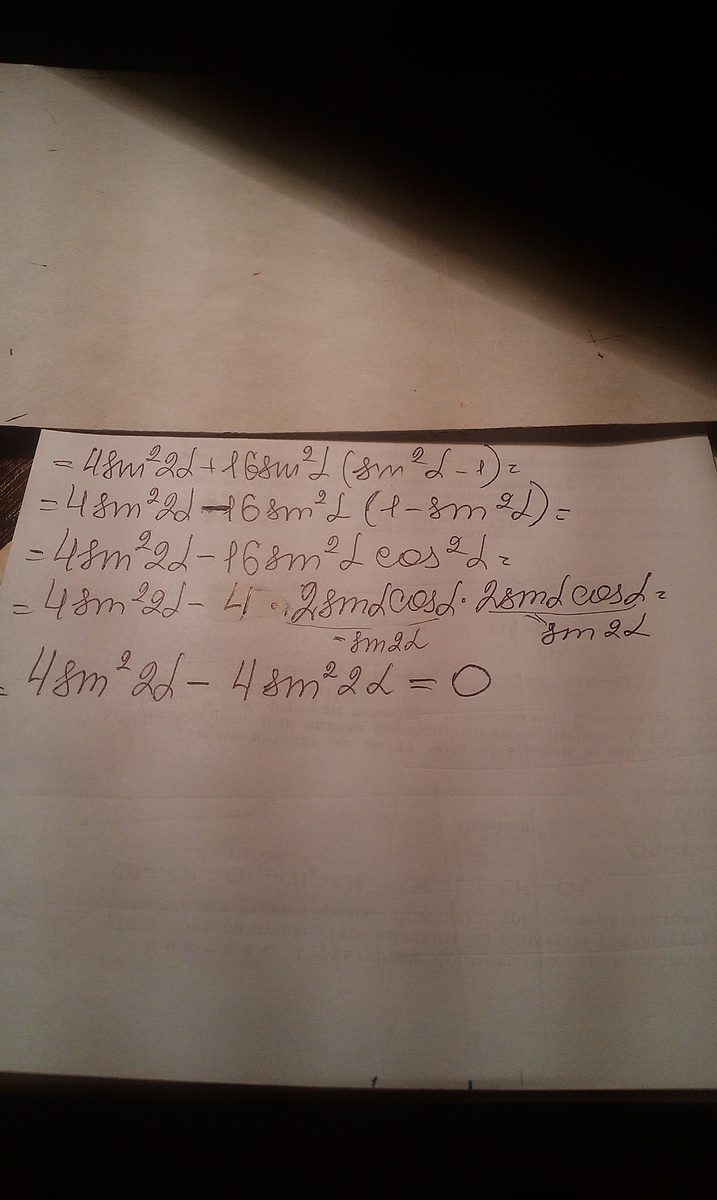 = 4sin²2α + 16sin²α (sin²α - 1) =
= 4sin²2α - 16sin²α (1 - sin²α) =
= 4sin²2α - 16sin²α cos²α =
= 4sin²2α - 4 · 2sinαcosα · 2sinαcosα =
= sin2α sin2α
= 4sin²2α - 4sin²2α = 0